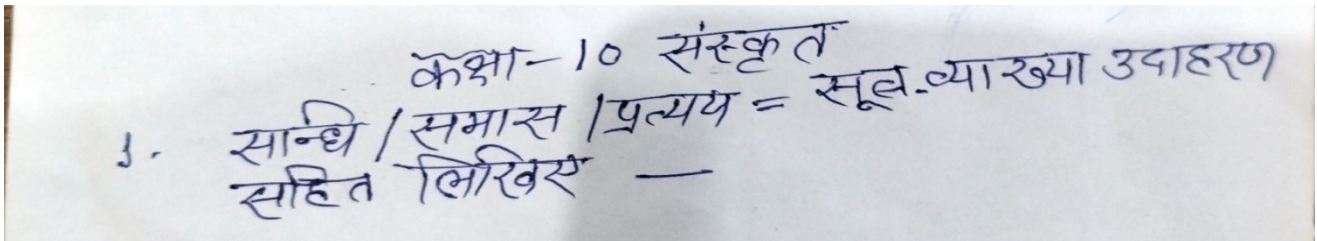 कक्षा - 10 संस्कृत
1. सन्धि / समास / प्रत्यय = सूत्र. व्याख्या उदाहरण
सहित लिखिए —